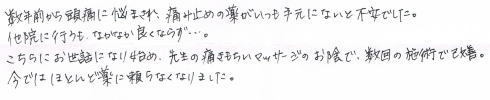 数年前から頭痛に悩まされ、痛み止めの薬がいつも手元にないと不安でした。
他院に行うも、なかなか良くならず…。
こちらにお世話になり4台め、先生の痛きもちいマッサージのお陰で、数回の施術で改善。
今ではほとんど薬に頼らなくなりました。